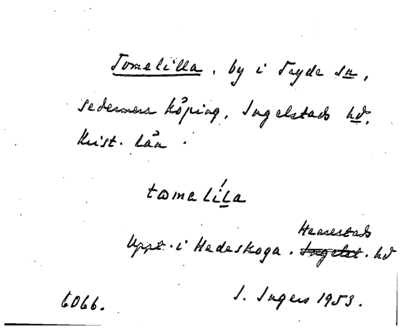 Tomelilla, by i Tryde sn,
sedermera köping, Ingelstads hd,
Krist. län.
tomelila
Uppt. i Hedeskoga. Herrestads Ingelst. hd
6066. I. Ingers 1953.